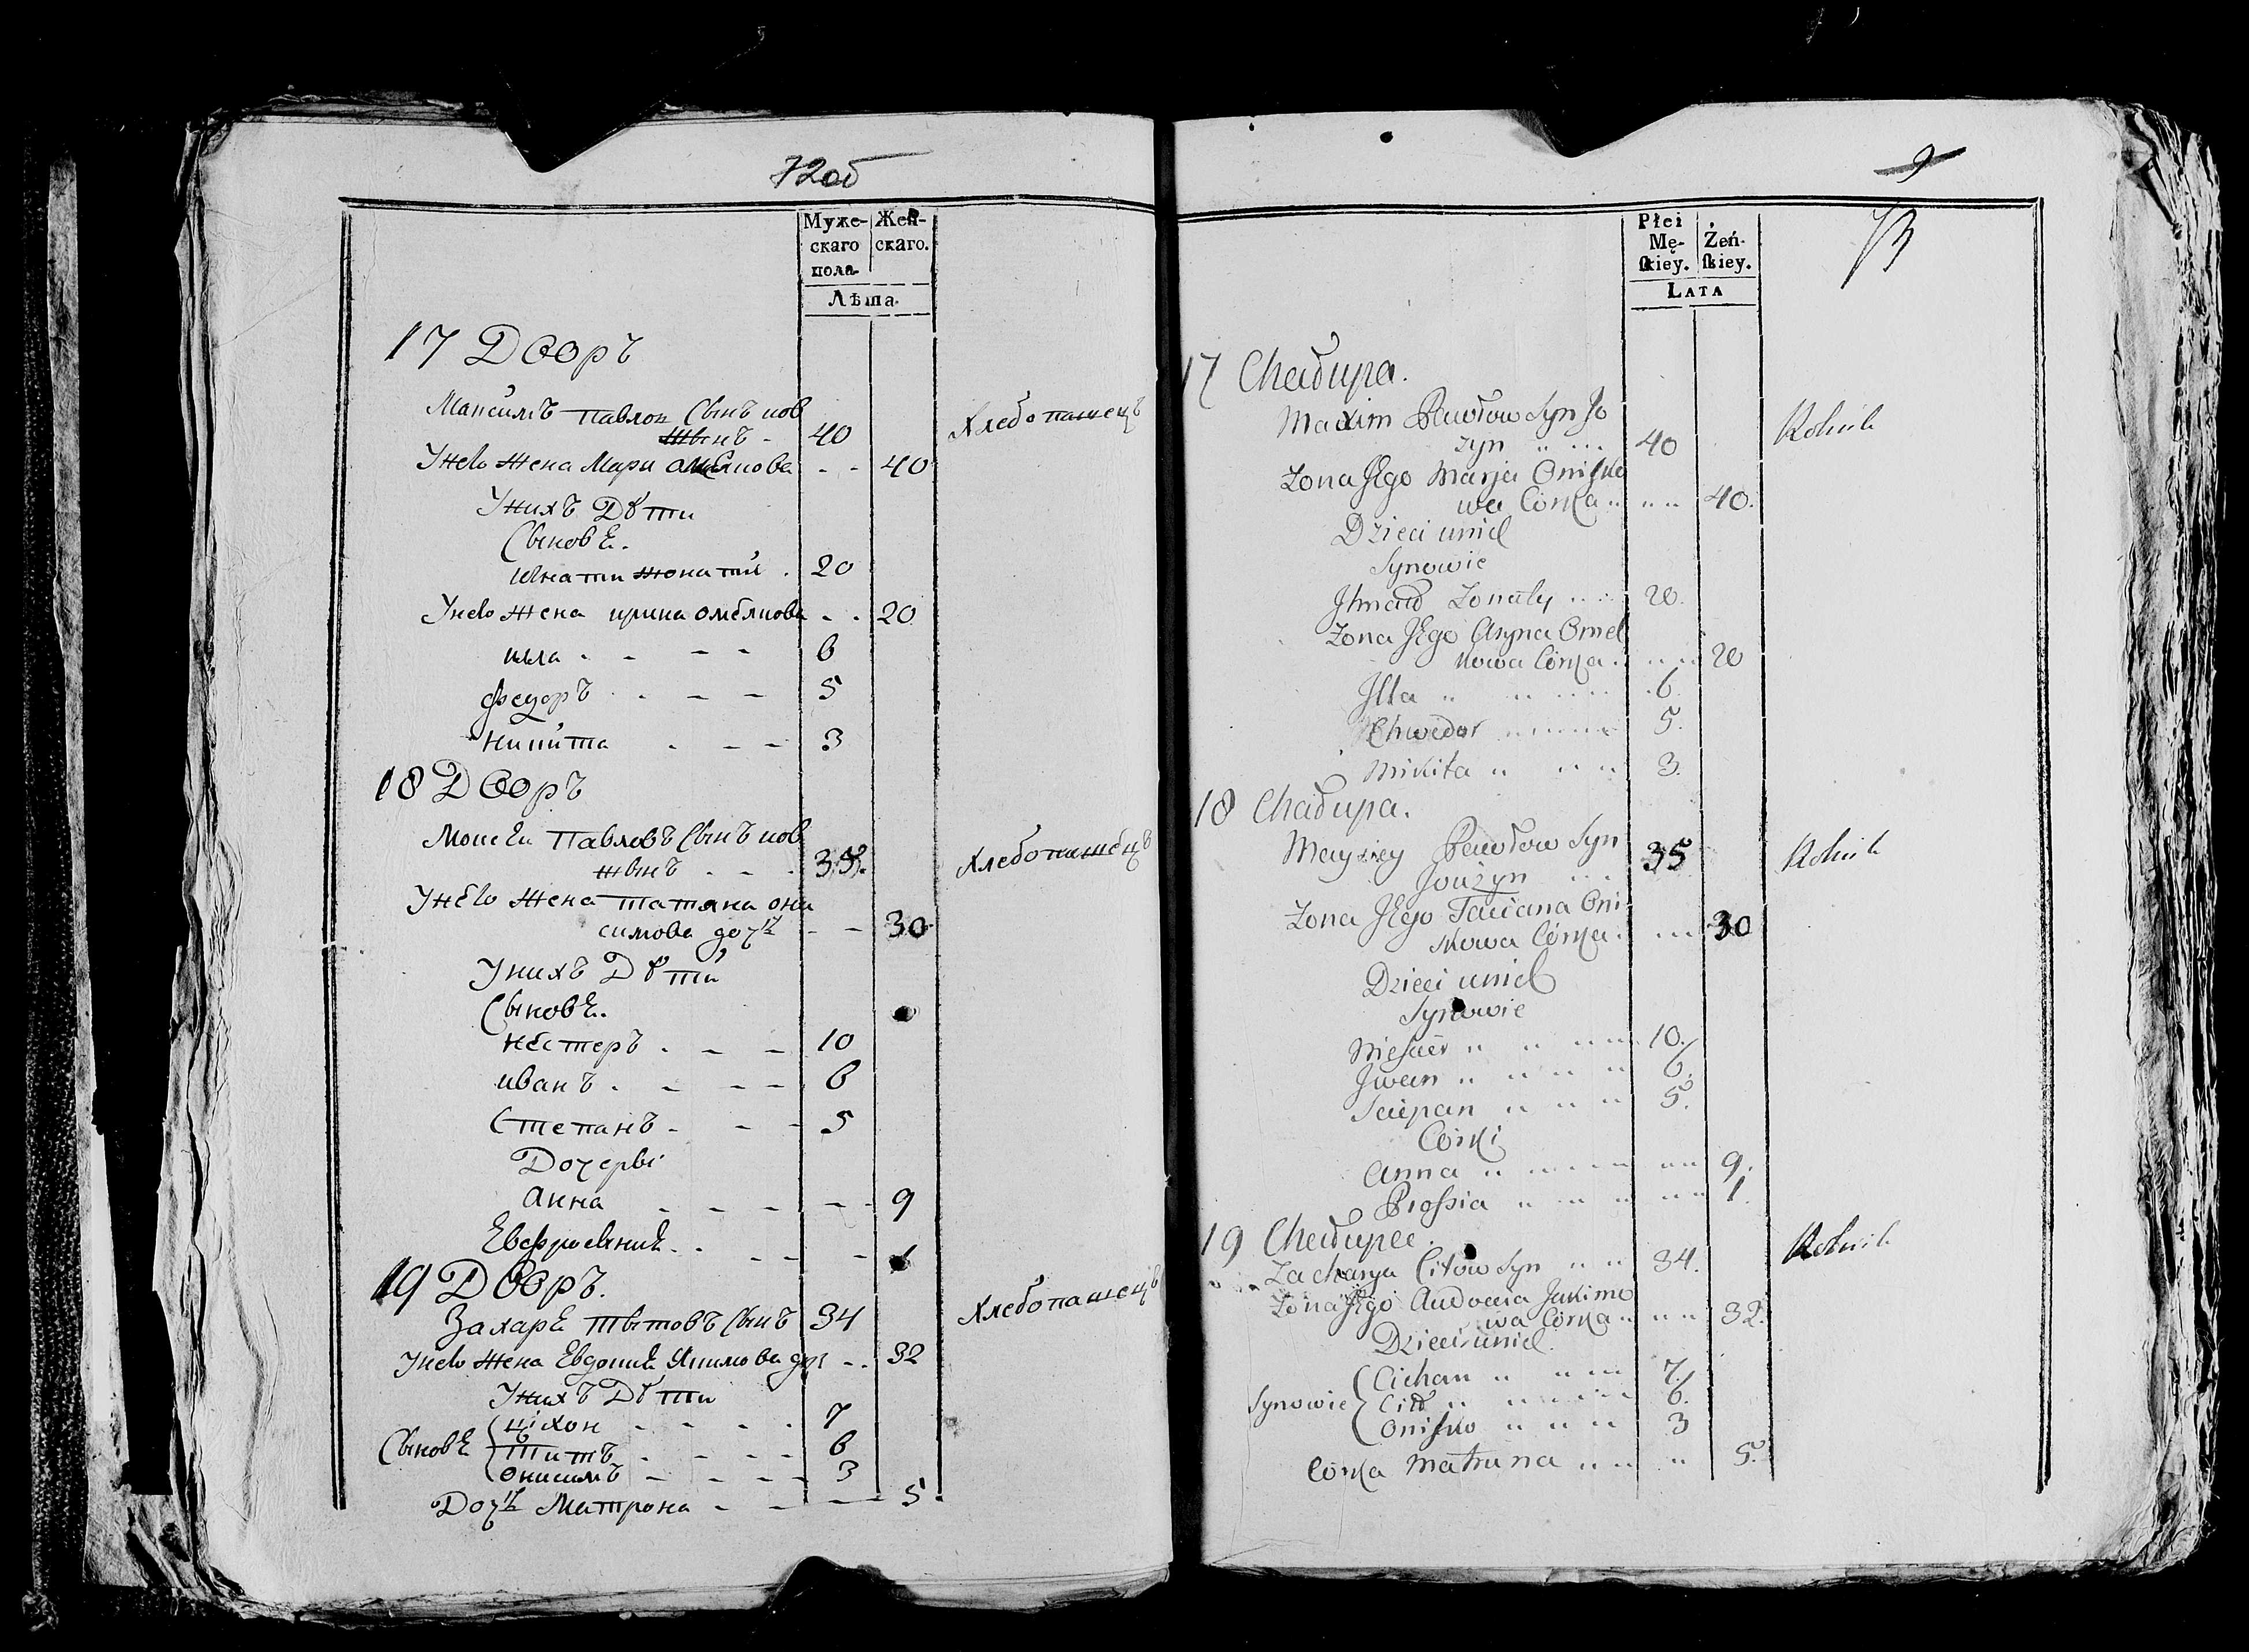 72об
Муже-
скаго
пола.
Жен-
скаго.
Лѣта.
17 Дворъ
Максимъ Павлов Сынъ ков
жынъ - 40
Хлебопашецъ
У него жена Мари - - 40
У нихъ Дѣти
Сыновѣ.
игнати жонати . 20
У него жена ирина омелкова - . 20
илла . - - - 6
федоръ . . - - 5
никита . - - 3
18 Дворъ
Моисеи Павловъ Сынъ ков
жынъ . - . 35.
Хлебопашецъ
У него жена татяна они
симова дочь - - 30
У нихъ Дѣти
Сыновѣ.
нестеръ . - - 10
иванъ . - - - 6
Степанъ - - - 5
Дочери
анна - - - - - 9
Евфросиниѣ . . - - - 1
19 Дворъ.
Захарѣ титовъ Сынъ 34
Хлебопашецъ
У него жена Евдокиѣ Якимова доч - . 32
У нихъ Дѣти
Сыновѣ
ціхон - - - . 7
титъ . - - - 6
онисимъ - - - - 3
Дочь Матрона - - - 5.
9
73
Płci
Mę-
ſkiey.
Żeń-
ſkiey.
LATA
17 Chałupa.
Maxim Pawłow Syn Jo
zyn 40
Rolnik
Zona Jego Marja Onisko
wa Córka 40.
Dzieci u nich
Synowie
Jhnat Zonaty 20.
Zona Jego Aryna Omel
kowa Córka 20
Jlla 6.
Chwedor 5.
Mikita 3.
18 Chałupa.
Mayziey Pawłow Syn 35
Jouzyn
Rolnik
Zona Jego Taciana Oni-
skowa Córka 30
Dzieci u nich
Synowie
Niescier 10.
Jwan 6.
Sciepan 5.
Córki
Anna 9.
Prossia 1.
19 Chałupa.
Zacharya Citow Syn 34.
Rolnik
Zona Jego Audocia Jakimo
wa Córka 32.
Dzieci u nich
Synowie
Cichan 7.
Cit 6.
Onisko 3
Córka Matruna 5.